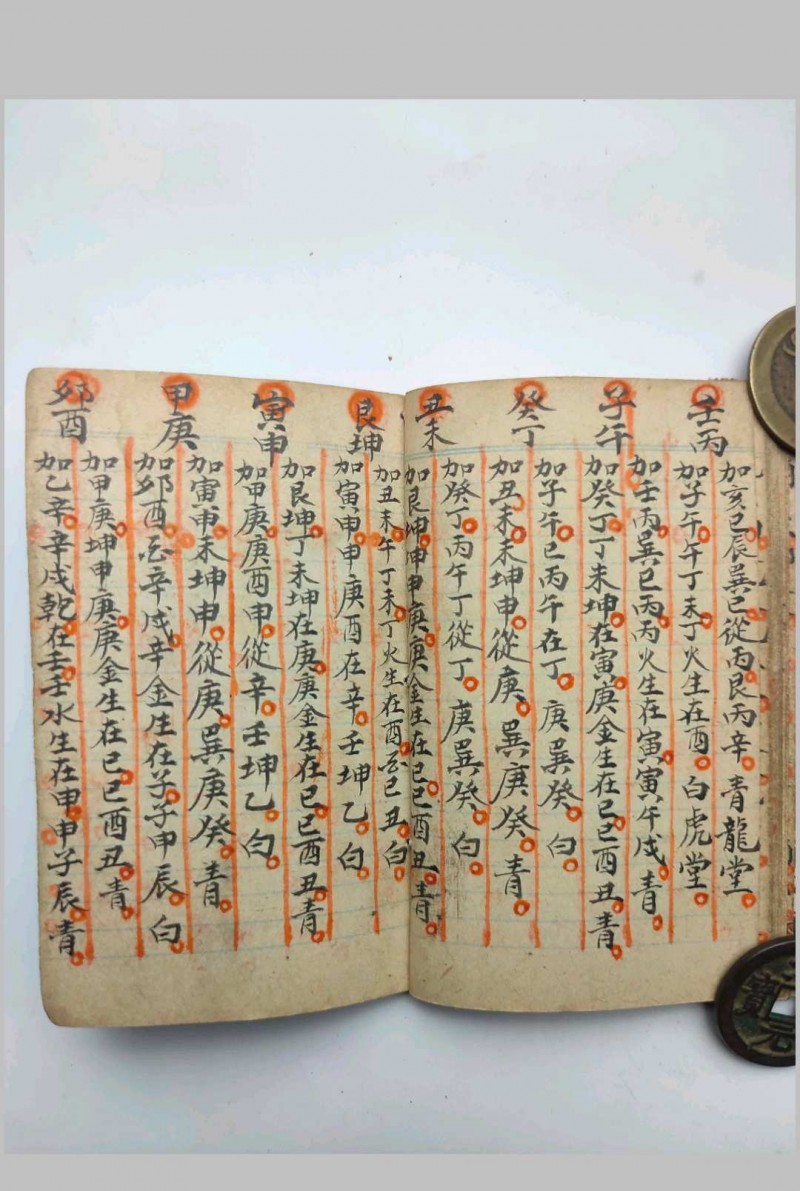 壬丙
加亥巳辰巽巳從丙艮丙辛青龍堂
加子午午丁未丁火生在酉白虎堂
子午
加壬丙巽巳丙丙火生在寅寅午戌青
加癸丁丁未坤在寅庚金生在巳巳酉丑青
癸丁
加子午巳丙午在丁庚巽癸白
加丑未未坤申從庚巽庚癸青
丑未
加癸丁丙午丁從丁庚巽癸白
加艮坤坤申庚庚金生在巳巳酉丑青
艮坤
加丑未午丁未丁火生在酉酉巳丑白
加寅申申庚酉在辛壬坤乙白
寅申
加艮坤丁未坤在庚庚金生在巳巳酉丑青
加甲庚庚酉申從辛壬坤乙白
甲庚
加寅申未坤申從庚巽庚癸青
加卯酉辛戌辛金生在子子申辰白
卯酉
加甲庚坤申庚庚金生在巳巳酉丑青
加乙辛辛戌乾在壬壬水生在申申子辰青
寶元